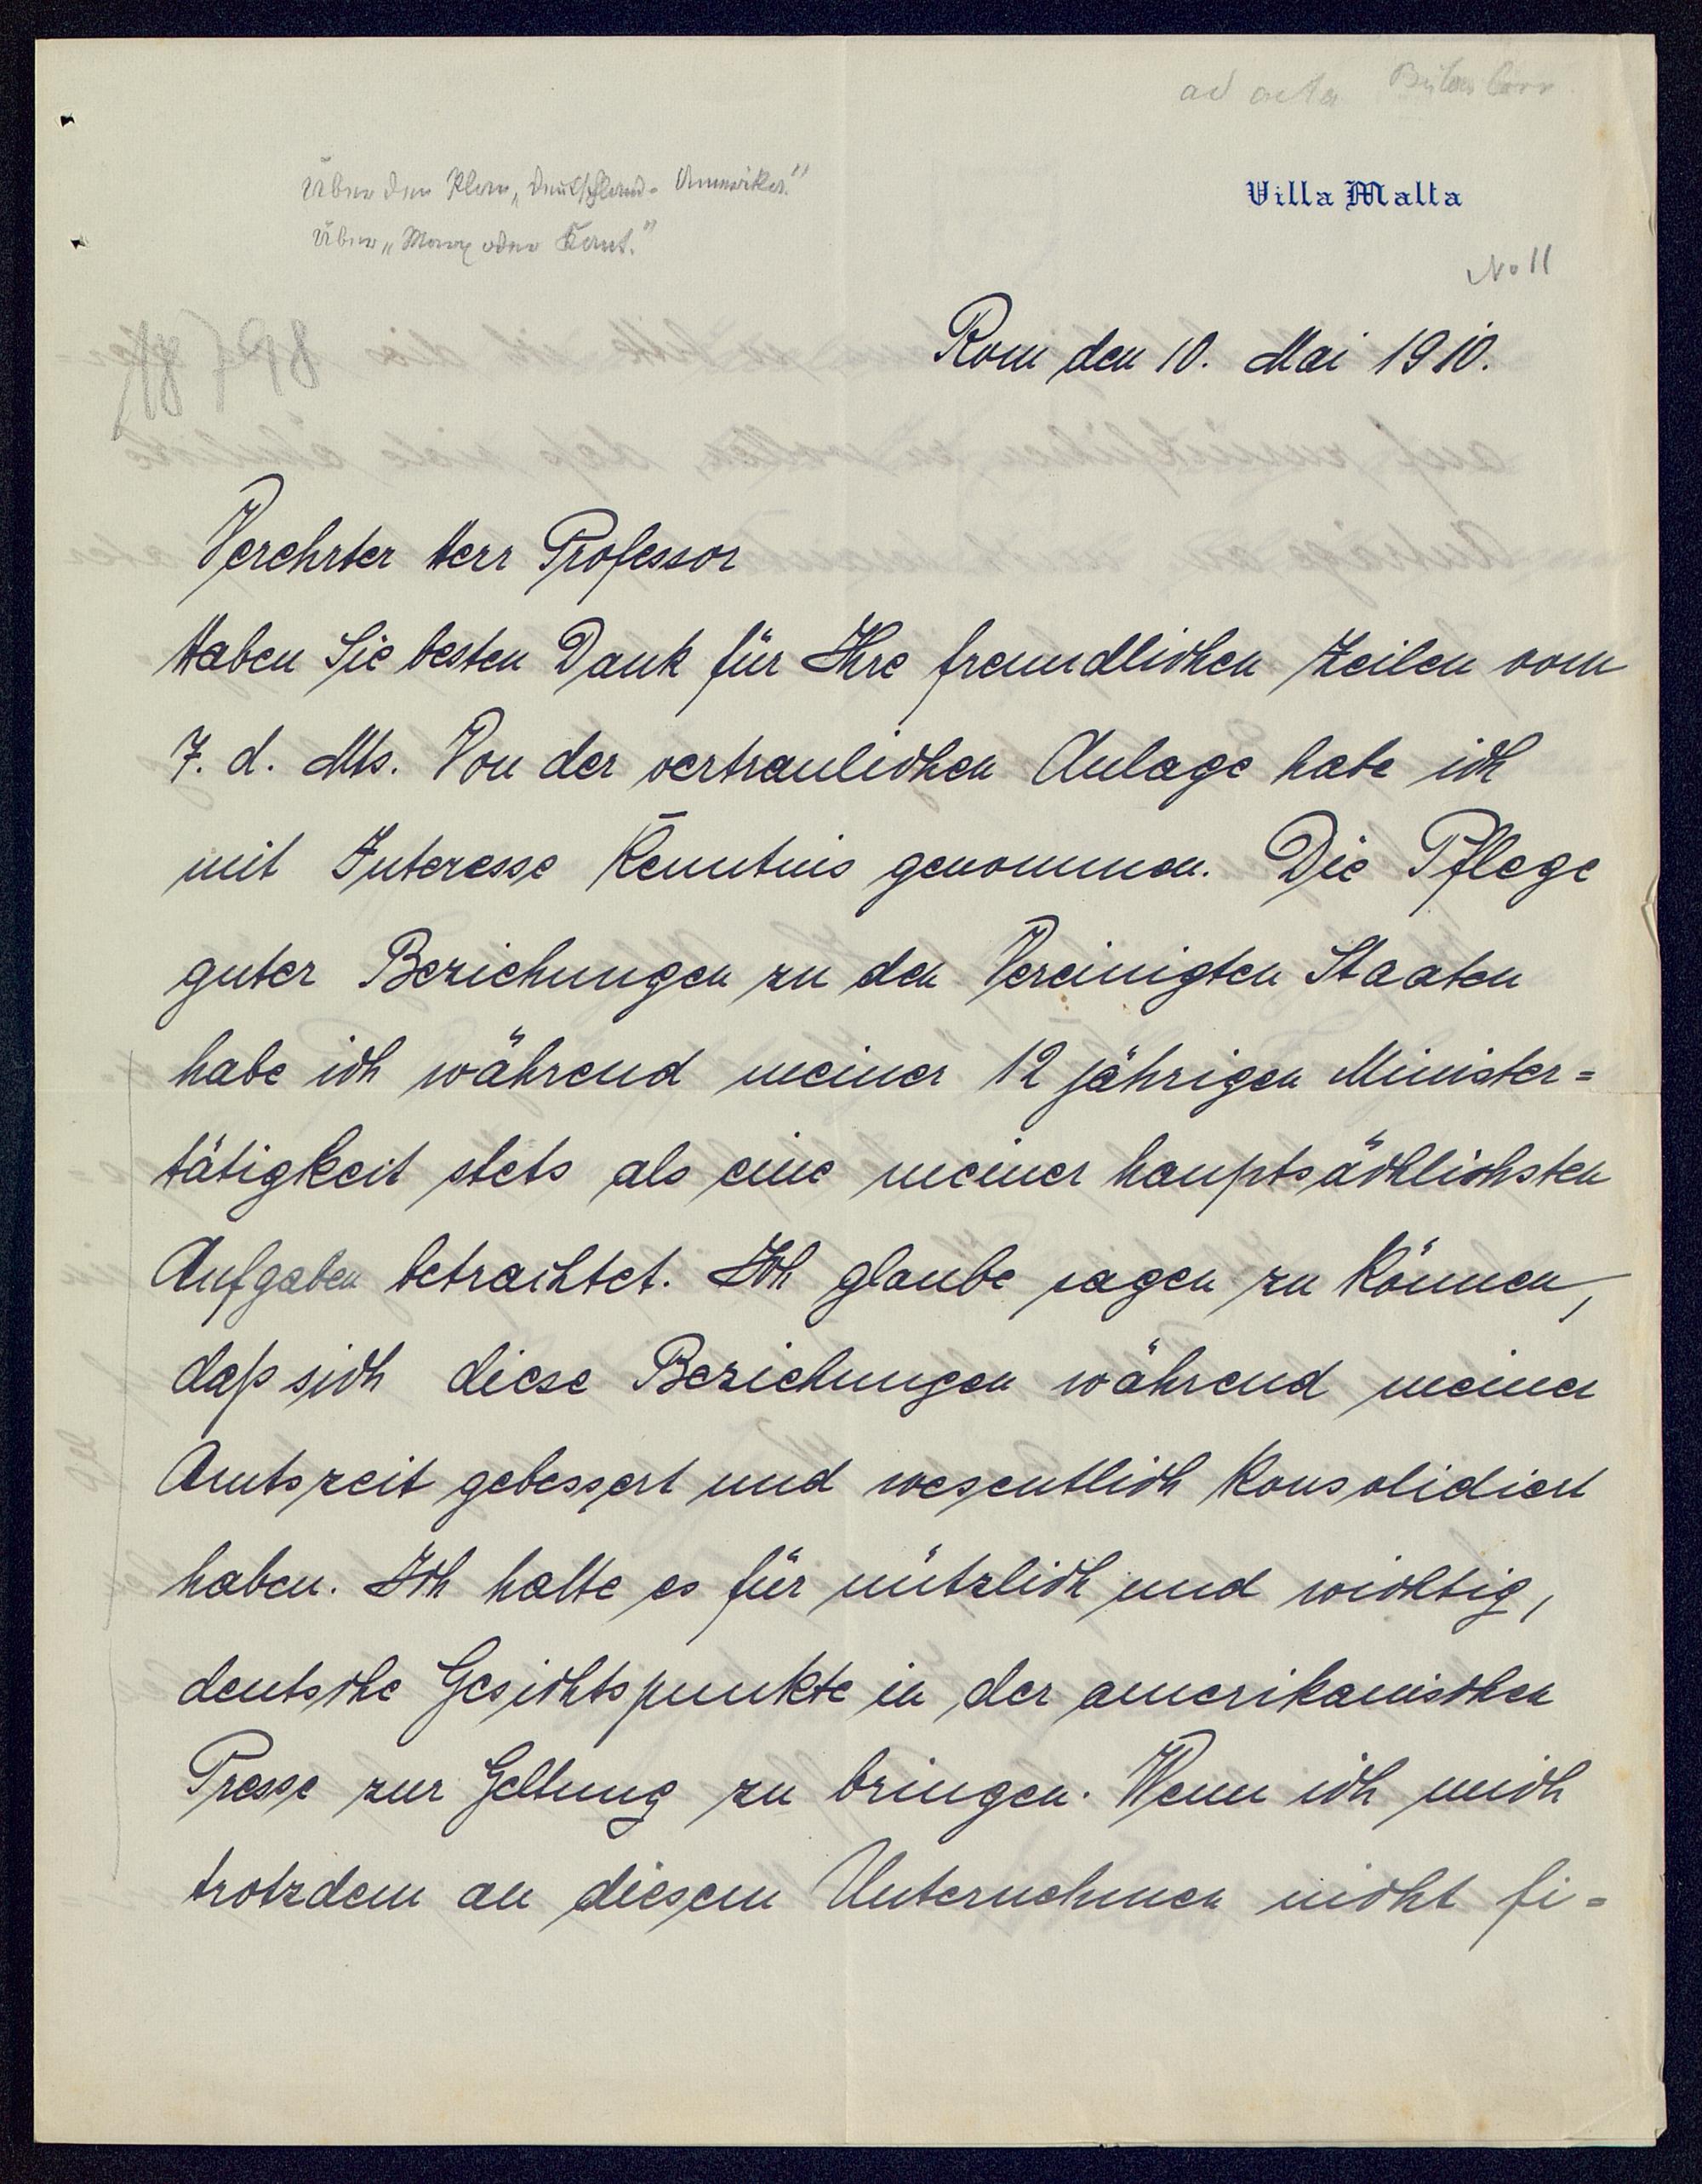 ad acta Bülow Corr.
Über den Plan „Deutschland-Amerika."
Über „Marx oder Kant."
Villa Malta
No 11
Rom den 10. Mai 1910.
Verehrter Herr Professor
Haben Sie besten Dank für Ihre freundlichen Zeilen vom
7. d. Mts. Von der vertraulichen Anlage habe ich
mit Interesse Kenntnis genommen. Die Pflege
guter Beziehungen zu den Vereinigten Staaten
habe ich während meiner 12 jährigen Minister=
tätigkeit stets als eine meiner hauptsächlichsten
Aufgaben betrachtet. Ich glaube sagen zu können,
daß sich diese Beziehungen während meiner
Amtszeit gebessert und wesentlich konsolidiert
haben. Ich halte es für nützlich und wichtig,
deutsche Gesichtspunkte in der amerikanischen
Presse zur Geltung zu bringen. Wenn ich mich
trotzdem an diesem Unternehmen nicht fi=